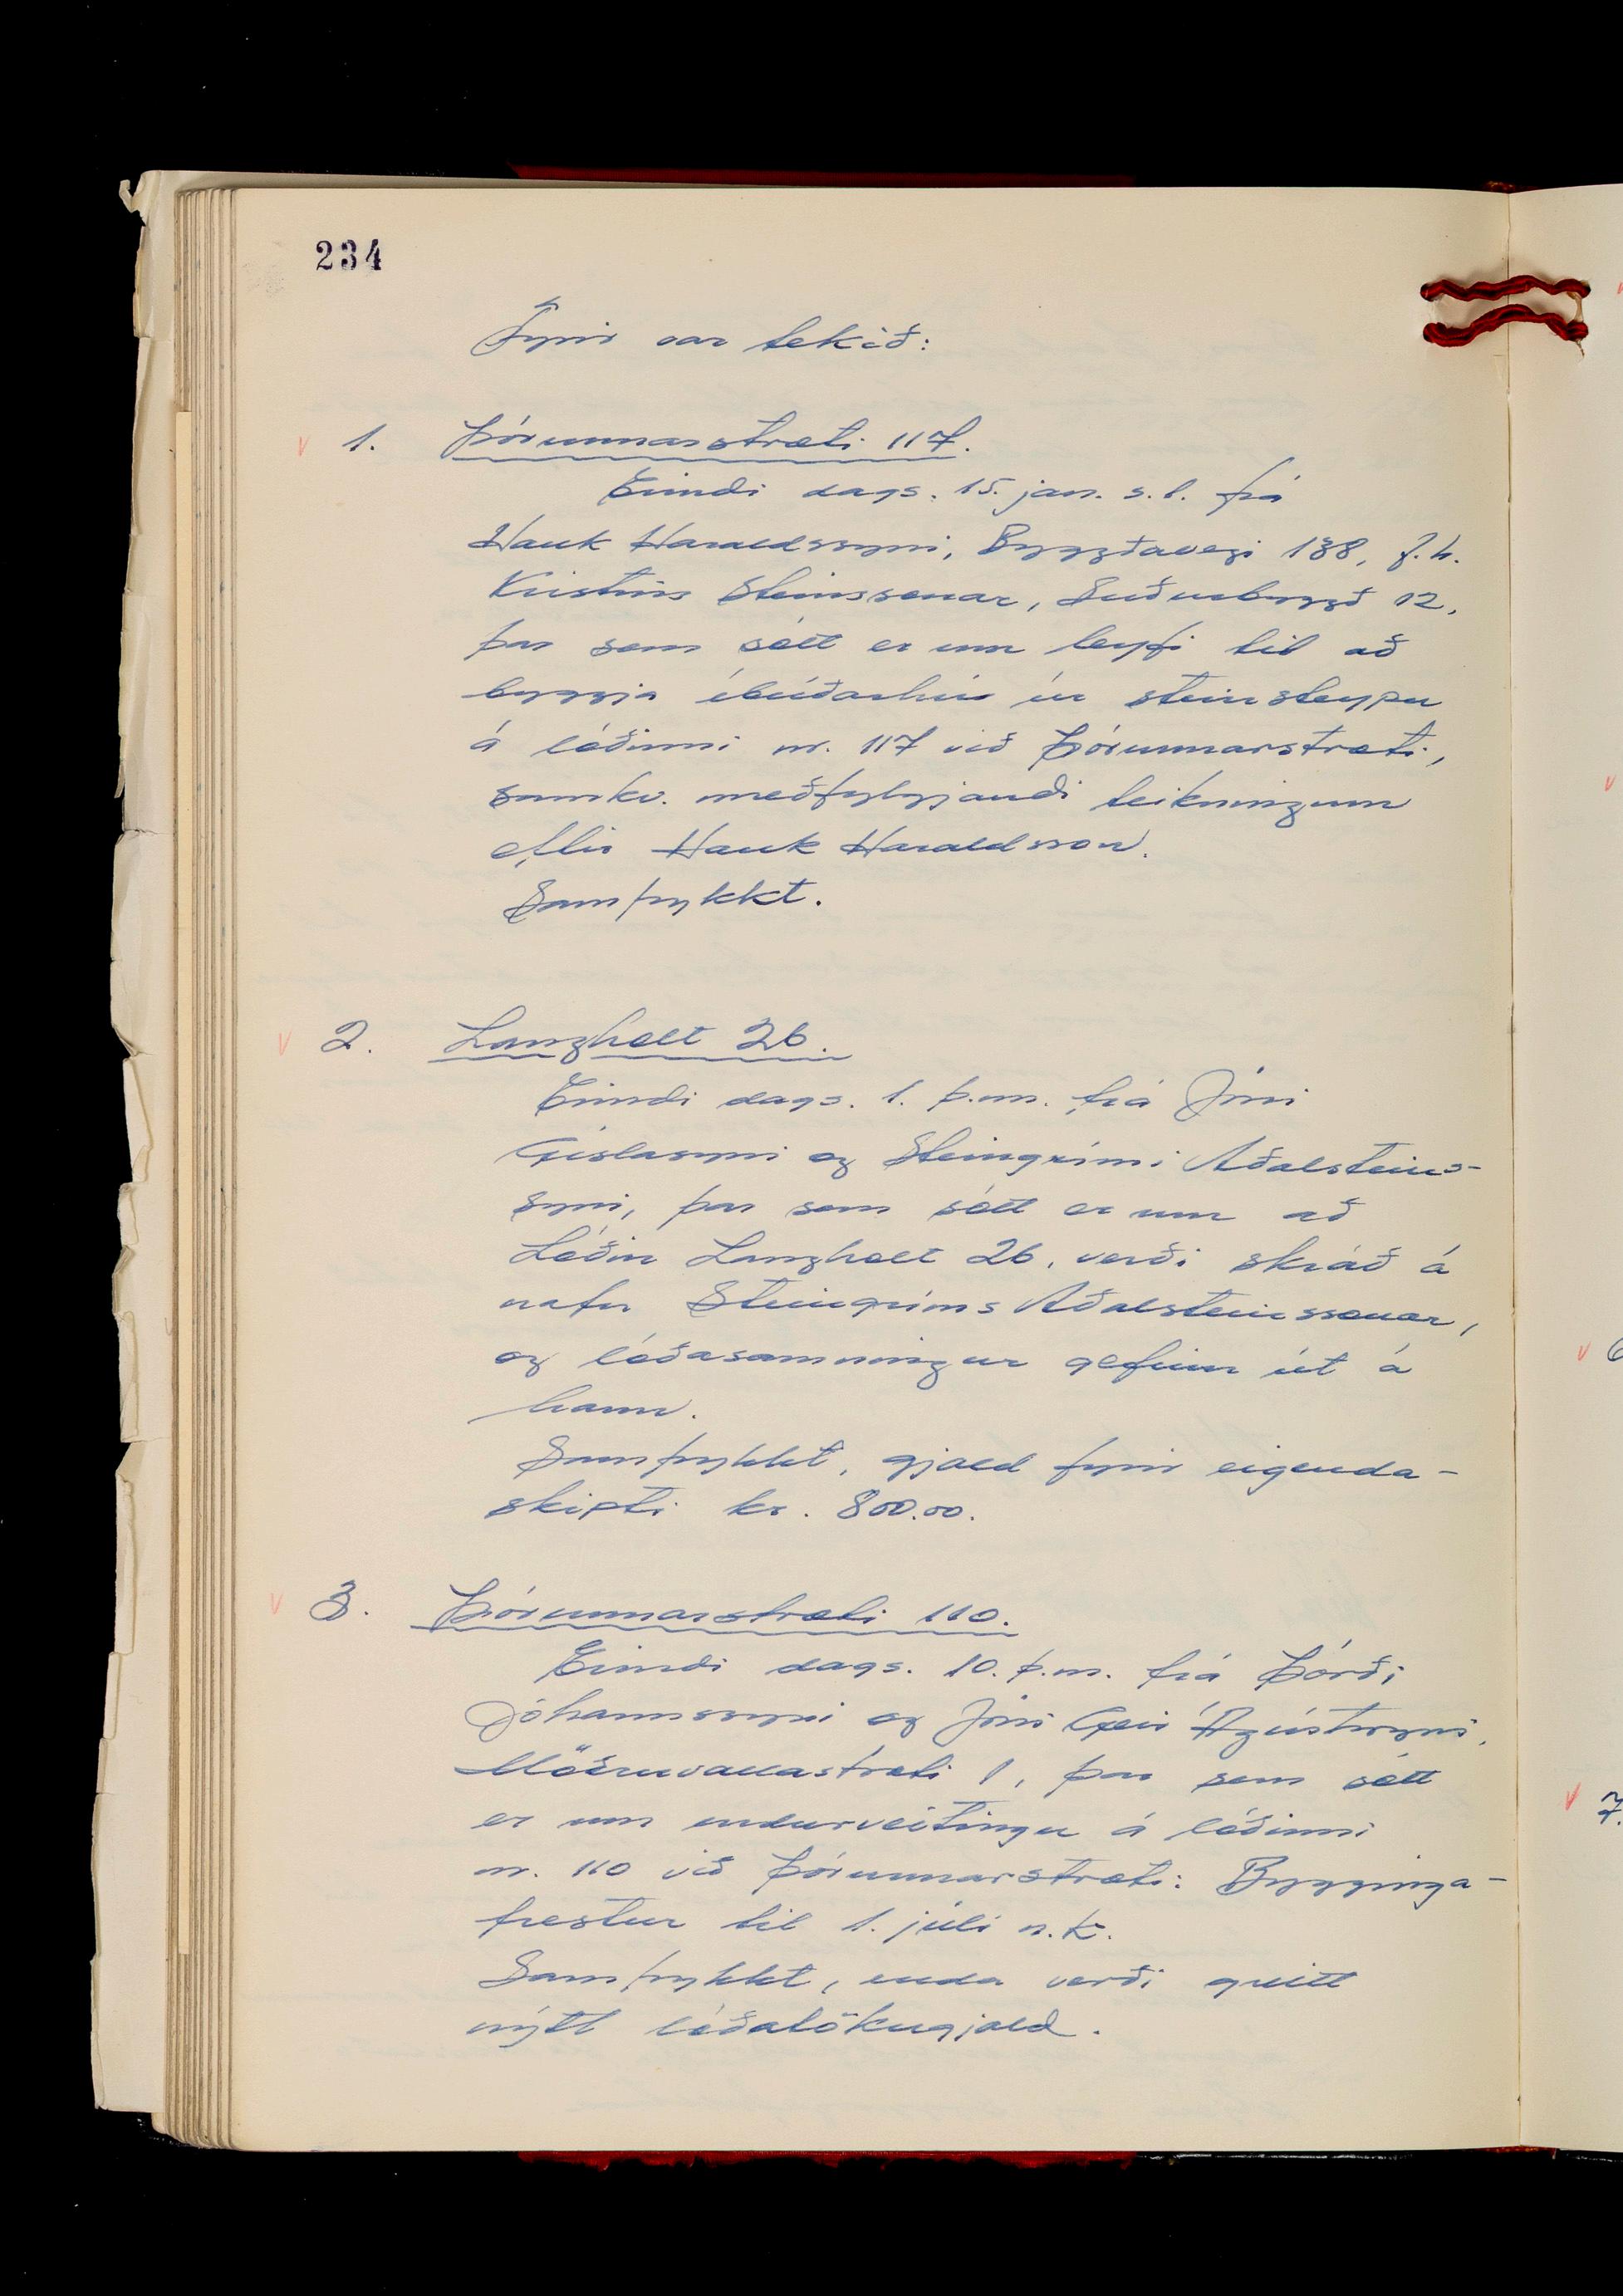 234
Fyrir var tekið:
1. Þórunnarstræti 117.
Erindi dags. 15. jan. s.l. frá
Hauk Haraldssyni, Byggðavegi 138, f.h.
Kristins Steinssonar, Suðurbyggð 12,
þar sem sótt er um leyfi til að
byggja íbúðarhús úr steinsteypu
á lóðinni nr. 117 við Þórunnarstræti,
samkv. meðfylgjandi teikningum
eftir Hauk Haraldsson.
Samþykkt.
2. Langholt 26.
Erindi dags. 1. þ.m. frá Jóni
Gíslasyni og Steingrími Aðalsteins-
syni, þar sem sótt er um að
Lóðin Langholt 26, verði skráð á
nafn Steingríms Aðalsteinssonar,
og lóðasamningur gefinn út á
hann.
Samþykkt, gjald fyrir eigenda-
skipti kr. 800.00.
3. Þórunnarstræti 110.
Erindi dags. 10. þ.m. frá Þórði
Jóhannssyni og Jóni Geir Ágústssyni,
Möðruvallastræti 1, þar sem sótt
er um endurveitingu á lóðinni
nr. 110 við Þórunnarstræti: Bygginga-
frestur til 1. júlí n.k.
Samþykkt, enda verði greitt
nýtt lóðatökugjald.
6
7.